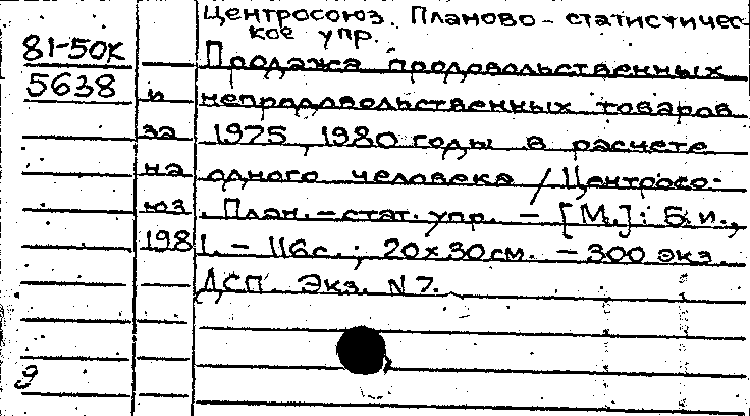 Центросоюз. Планово-статистичес-
кое упр.
81-50к
5638
Продажа продовольственных
и непродовольственных товаров
за 1975, 1980 годы в расчете
на одного человека / Центросо-
юз. План.-стат. упр. - [М.]: Б.и.,
1981. - 116с.; 20х30см. - 300 экз.
ДСП. Экз. N 7.
9